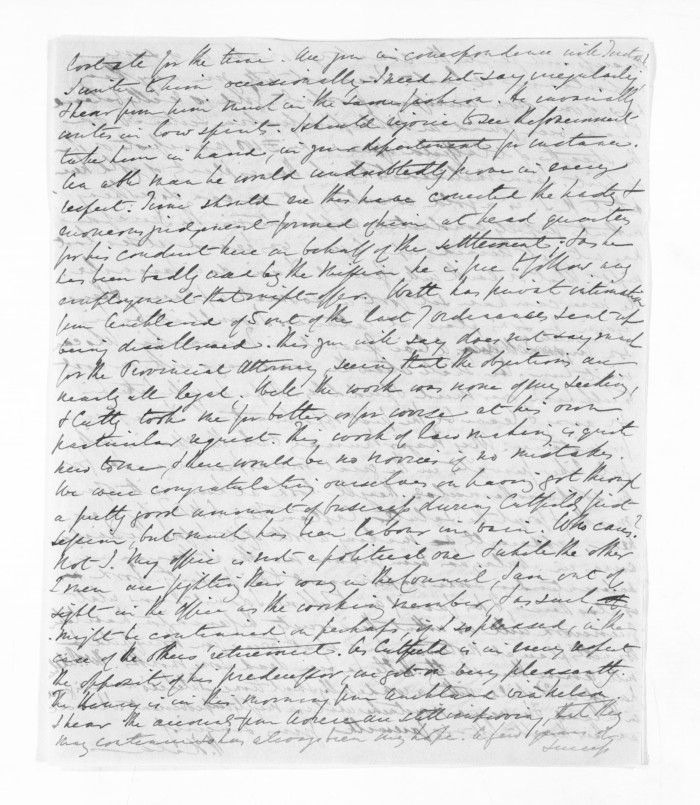 for the time. Are you in correspondence with
I write to him occasionally I need not say irregularly
I hear from him much in the same fashion. He invariably
writes in low spirits. I should rejoice to see the Government
take him in hand, in your department for instance.
An able man he would undoubtedly prove in every
respect. Time should ere this have corrected the hasty &
erroneous judgment formed of him at head quarters
for his conduct here on behalf of the settlement; & as he
has been badly used by the he is free to follow any
employment that might offer. Watt has private intimation
from Auckland of 5 out of the last 7 ordinances sent up
being disallowed. This you will say does not say much
for the Provincial Attorney seeing that the objections are
nearly all legal. Well the work was none of my seeking,
& Cutty took me for better or for worse at his own
particular request. This work of law making is quite
new to me, & there would be no novices if no mistakes.
We were congratulating ourselves on having got through
a pretty good amount of business during Cutfield's first
session, but much has been labour in vain. Who cares?
Not I. My office is not a political one & while the other
2 men are fighting their way in the Council, I am out of
sight in the Office as the working member, & as such
might be continued on perhaps, if I so pleased, in the
case of the others' retirement. As Cutfield is in every respect
the opposite of his predecessor, we get on very pleasantly.
The is in this morning from Auckland
I hear the accounts from are still improving, that they
may continue so has always been my hope. A few years of
success